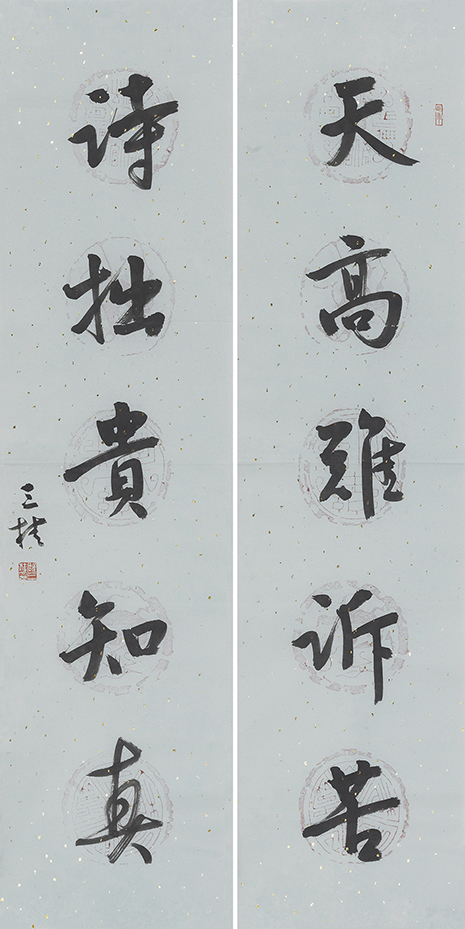 天高難訴苦
詩拙貴知真